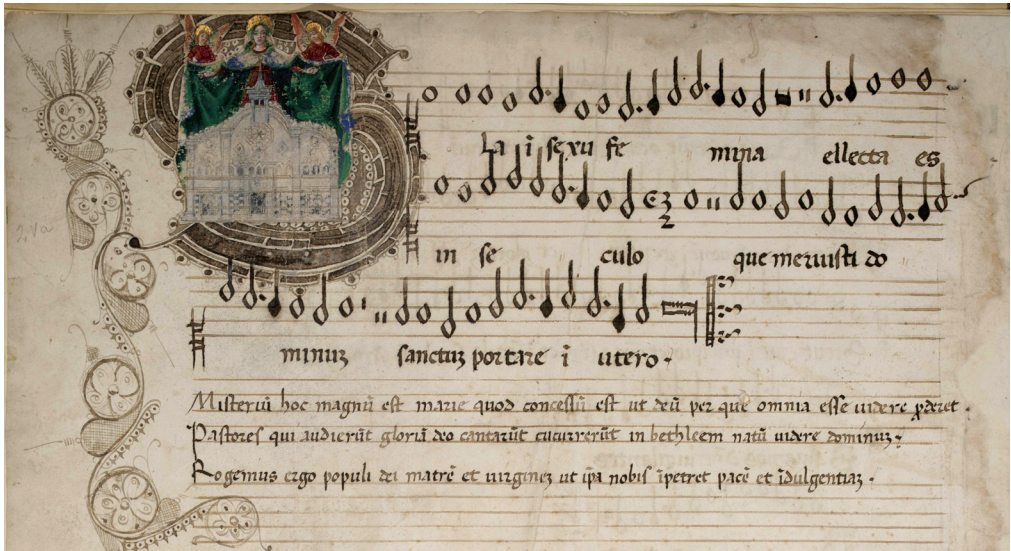 la ī sexu fe mina ellecta es
in se culo que meruisti do
minuz sanctuz portare ī utero.
Misteriū hoc magnū est marie quod concessū est ut deū per quē omnia esse videre ꝑderet.
Pastores qui audierūt gloriā deo cantarūt cucurrerūt in bethleem natū videre dominuz.
Rogemus ergo populi dei matrē et virginez ut ip̄a nobis īpetret pacē et īdulgentiaz.